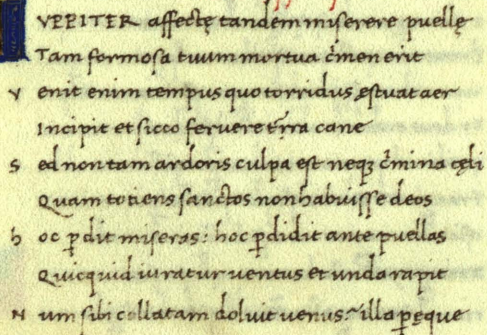 IVPPITER affectę tandem miserere puellę
Tam formosa tuum mortua c̄men erit
V enit enim tempus quo torridus ęstuat aer
Incipit et sicco feruere t̄rra cane
S ed non tam ardoris culpa est neqꝫ c̄mina cęli
Quam totiens sanctos non habuisse deos
h oc ꝑdit miseras: hoc ꝑdidit ante puellas
Quicquid iuratur uentus et unda rapit
N um sibi collatam doluit uenus: illa peręque